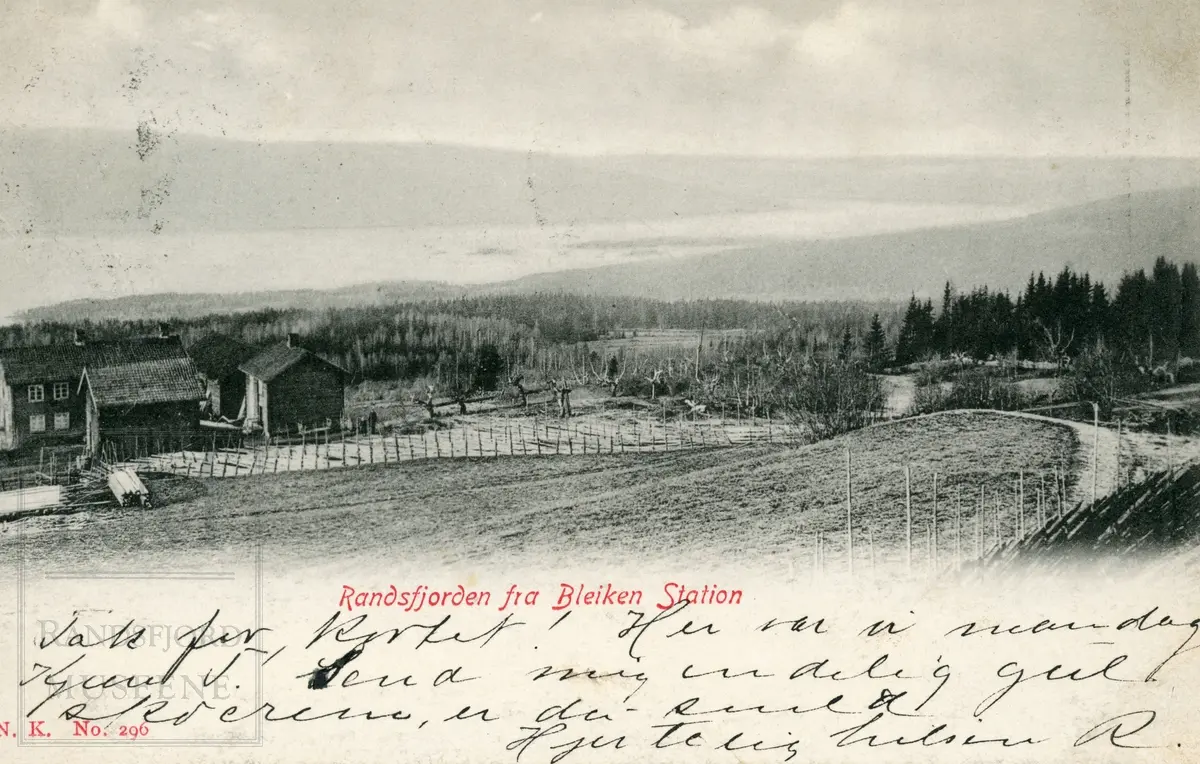 Randsfjorden fra Bleiken Station
Tak for, kortet! Her var vi mandag
Send mig endelig
er du snild
Hjertelig hilsen R.
RANDSFJORD
MUSEENE
N. K. No. 296